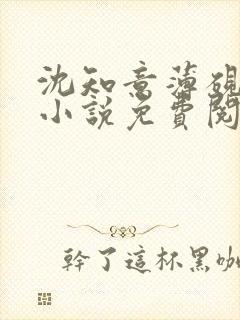 沈知意薄硯
小說免費閱
幹了這杯黑咖